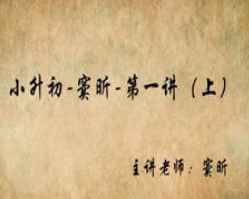 小升初-窦昕-第一讲（上）
主讲老师：窦昕